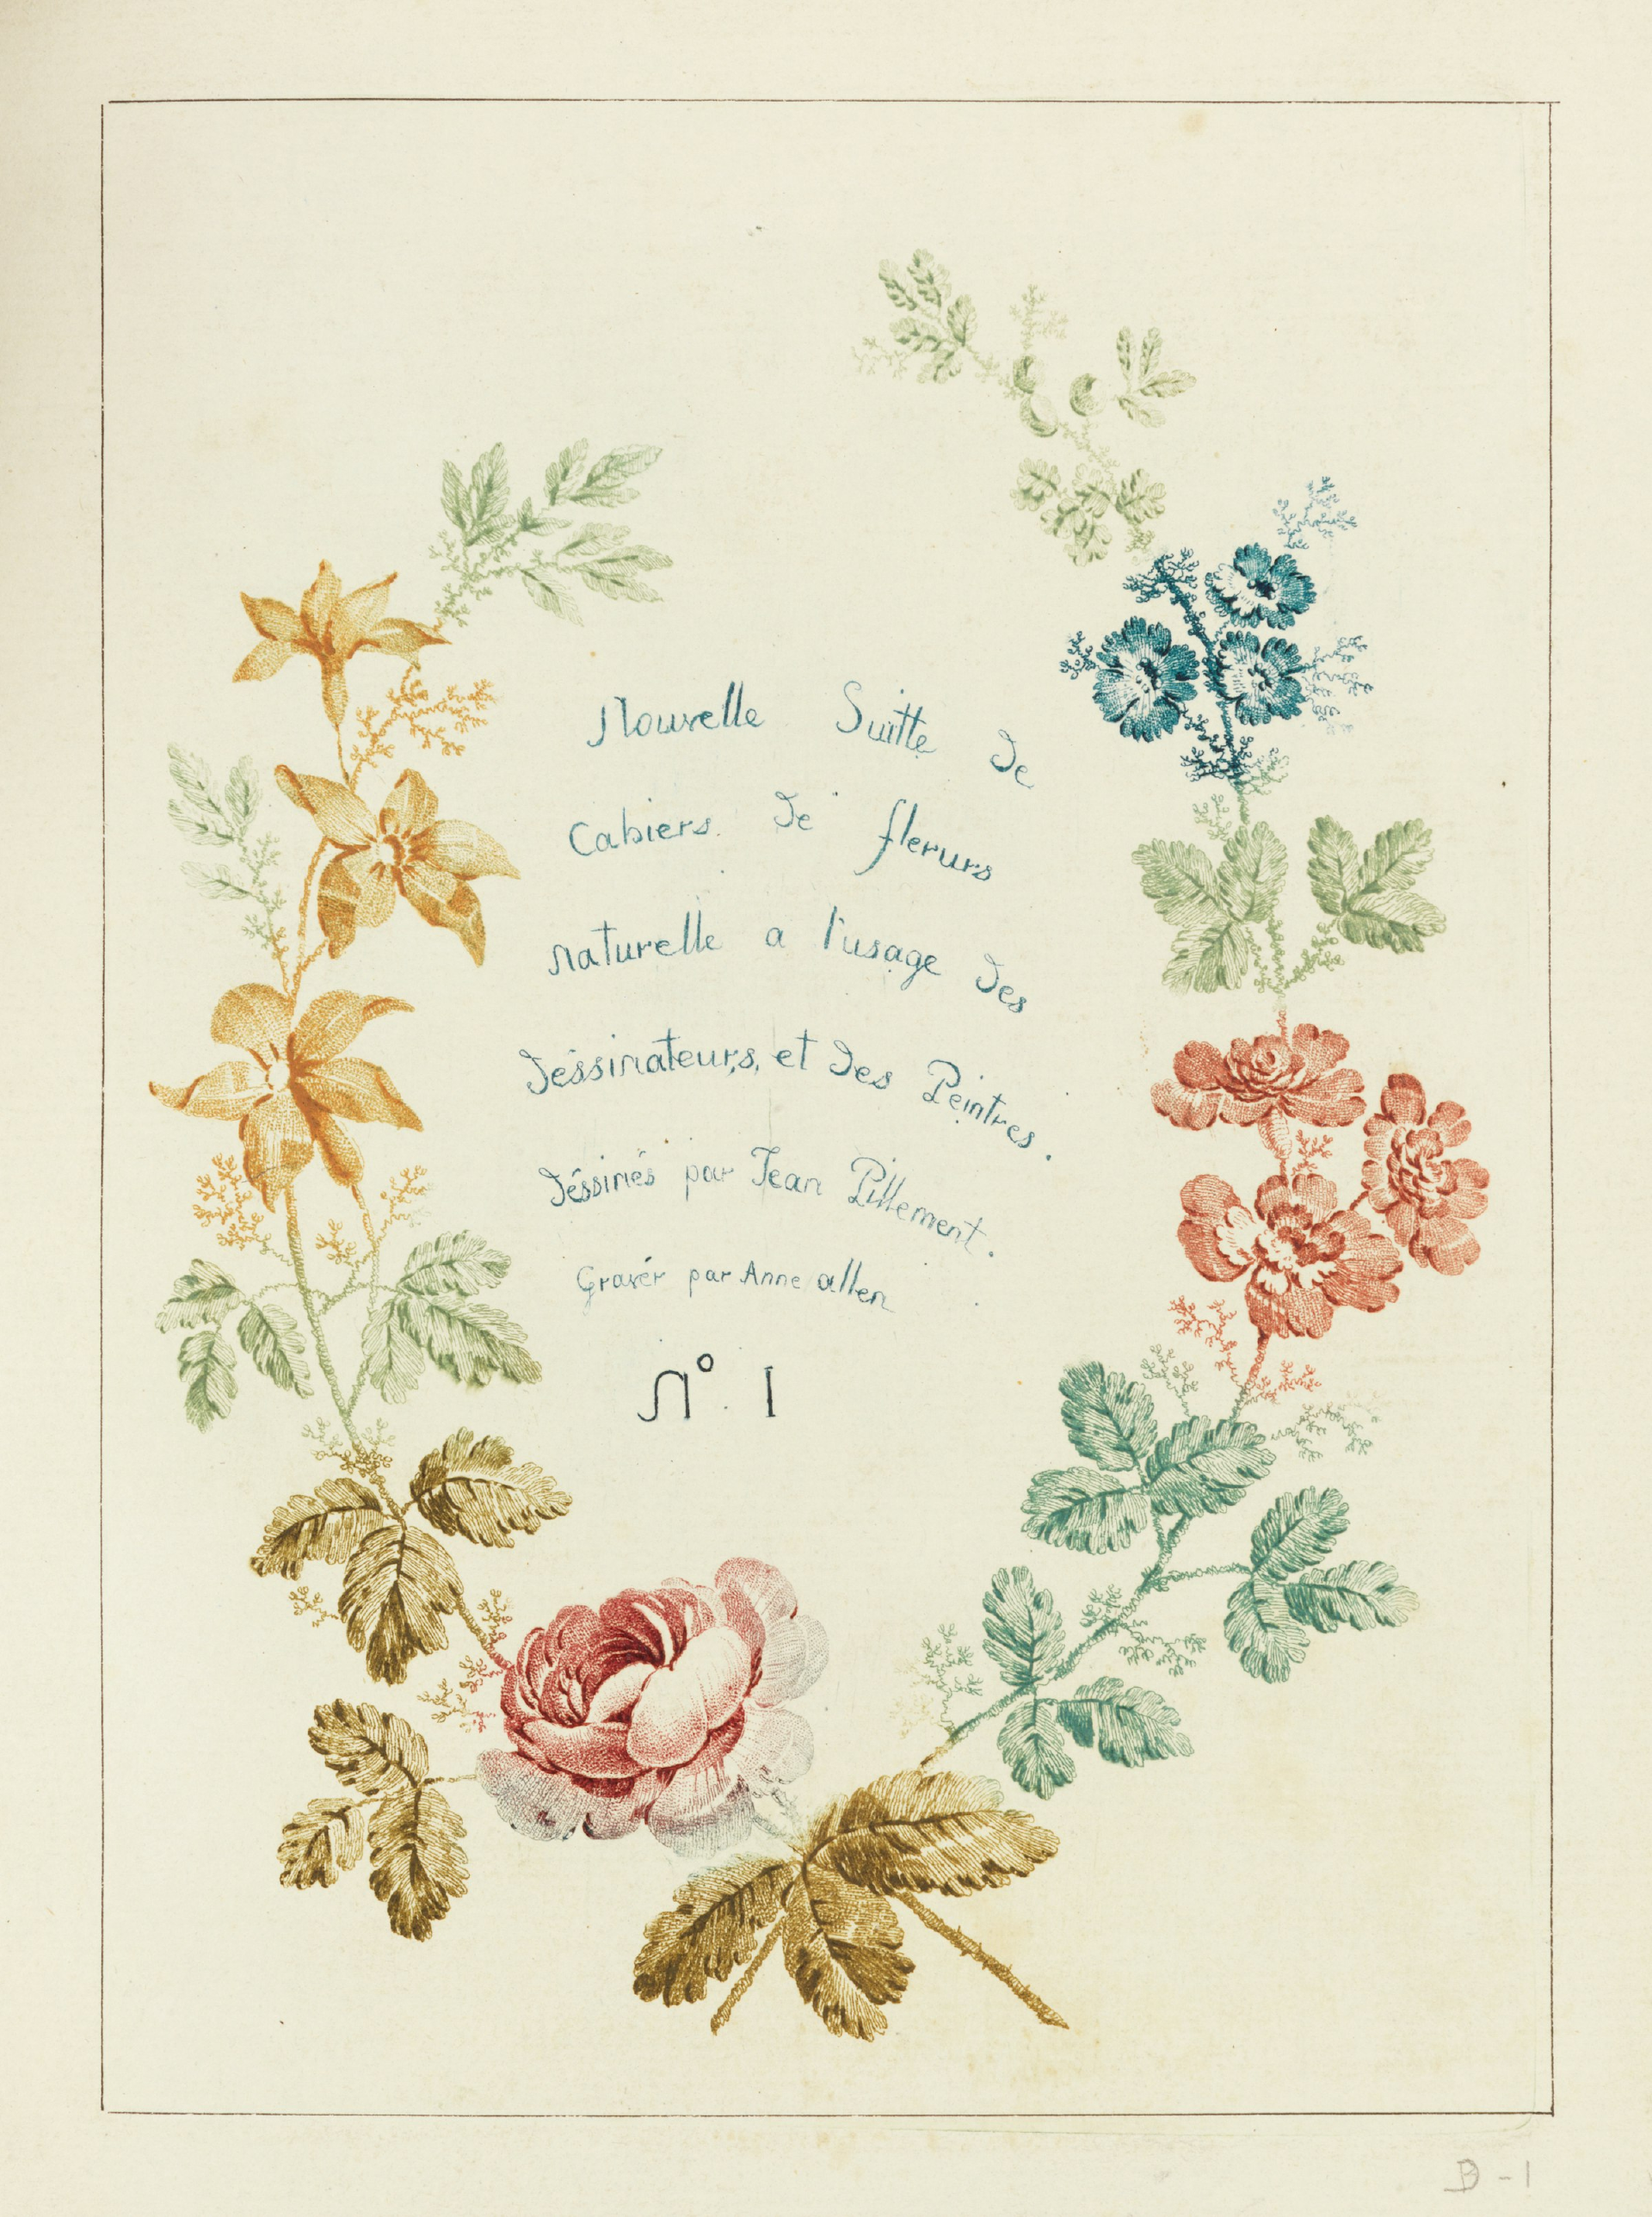 Nouvelle Suitte de
Cahiers de flerurs
naturelle a l'usage des
déssinateurs, et des Peintres.
déssinés par Jean Pillement.
Gravér par Anne allen
N° 1
D-1